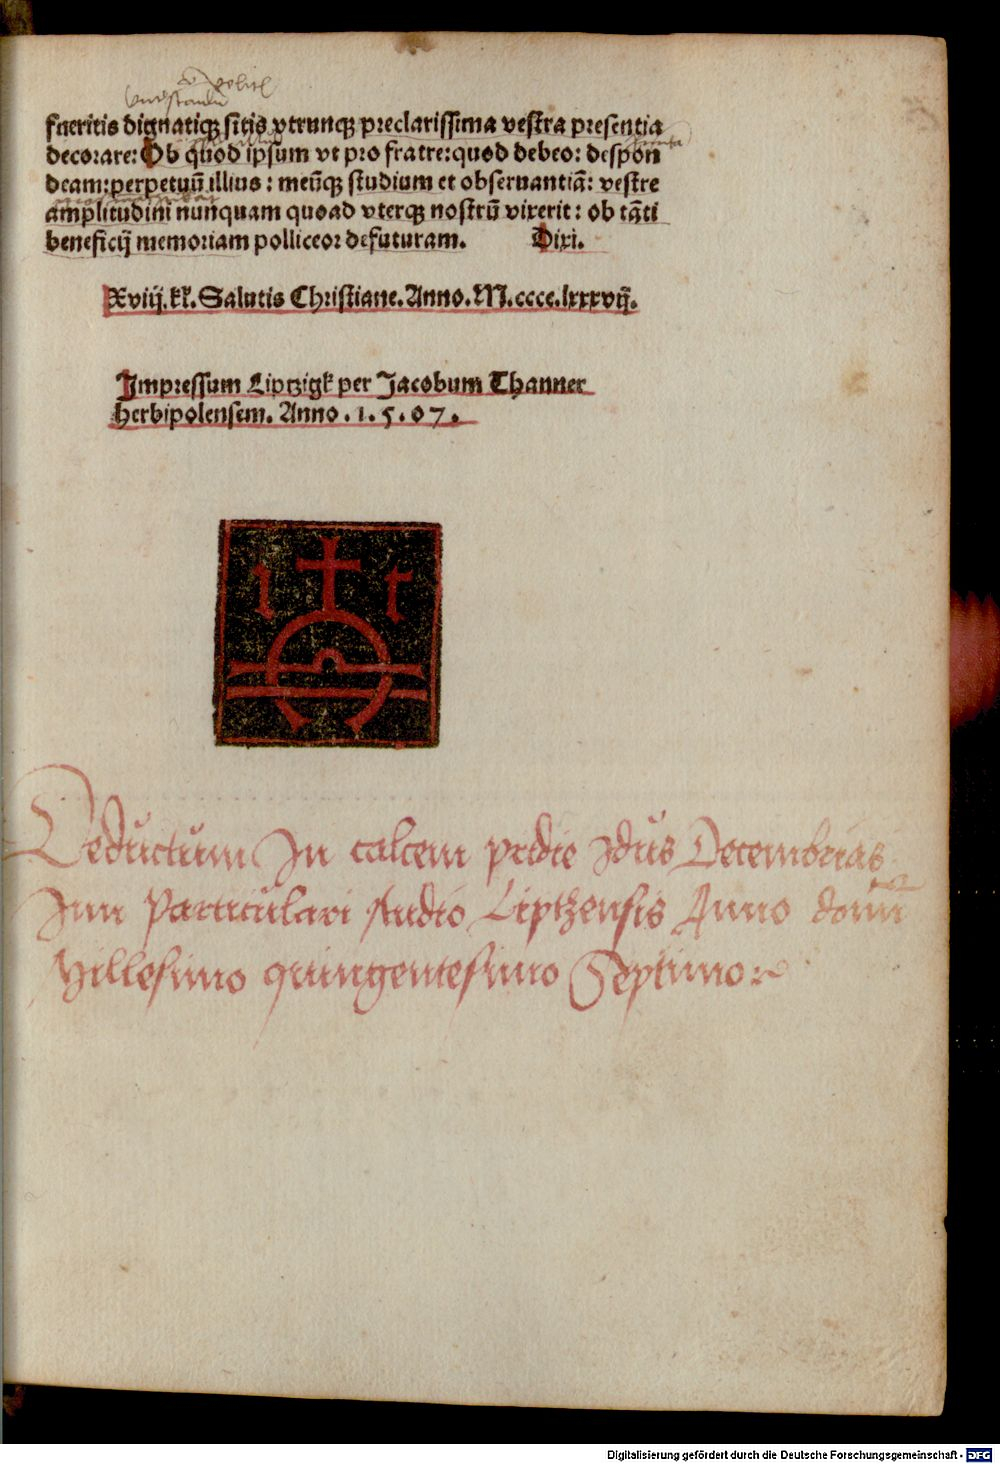 fueritis dignatiqꝫ sitis vtrunqꝫ preclarissima vestra presentia
decorare: Ob quod ipsum vt pro fratre: quod debeo: despon
deam: perpetuū illius: meūqꝫ studium et obseruantiā: vestre
amplitudini nunquam quoad vterqꝫ nostrū vixerit: ob tāti
beneficij memoriam polliceor defuturam. Dixi.
Xviij. kk. Salutis Christiane. Anno. M.cccc.lxxxvij.
Impressum Liptzigk per Jacobum Thanner
Herbipolensem. Anno .1.5.07.
i t
Deductum In calcem pridie Idus Decembrias
Inn Particulari studio Liptzensis Anno domī
Millesimo quingentesimo Septimo:~
Digitalisierung gefördert durch die Deutsche Forschungsgemeinschaft - DFG